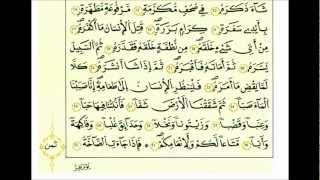 شَآءَ ذَكَرَهُۥ فِى صُحُفٍ مُّكَرَّمَةٍ مَّرْفُوعَةٍ مُّطَهَّرَةٍ
بِأَيْدِى سَفَرَةٍ كِرَامٍ بَرَرَةٍ قُتِلَ ٱلْإِنسَٰنُ مَآ أَكْفَرَهُۥ
مِنْ أَىِّ شَىْءٍ خَلَقَهُۥ مِن نُّطْفَةٍ خَلَقَهُۥ فَقَدَّرَهُۥ ثُمَّ ٱلسَّبِيلَ
يَسَّرَهُۥ ثُمَّ أَمَاتَهُۥ فَأَقْبَرَهُۥ ثُمَّ إِذَا شَآءَ أَنشَرَهُۥ كَلَّا
لَمَّا يَقْضِ مَآ أَمَرَهُۥ فَلْيَنظُرِ ٱلْإِنسَٰنُ إِلَىٰ طَعَامِهِۦٓ إِنَّا صَبَبْنَا
ٱلْمَآءَ صَبًّا ثُمَّ شَقَقْنَا ٱلْأَرْضَ شَقًّا فَأَنۢبَتْنَا فِيهَا حَبًّا
وَعِنَبًا وَقَضْبًا وَزَيْتُونًا وَنَخْلًا وَحَدَآئِقَ غُلْبًا وَفَٰكِهَةً
وَأَبًّا مَّتَٰعًا لَّكُمْ وَلِأَنْعَٰمِكُمْ فَإِذَا جَآءَتِ ٱلصَّآخَّةُ
ثمن
يوم يفر